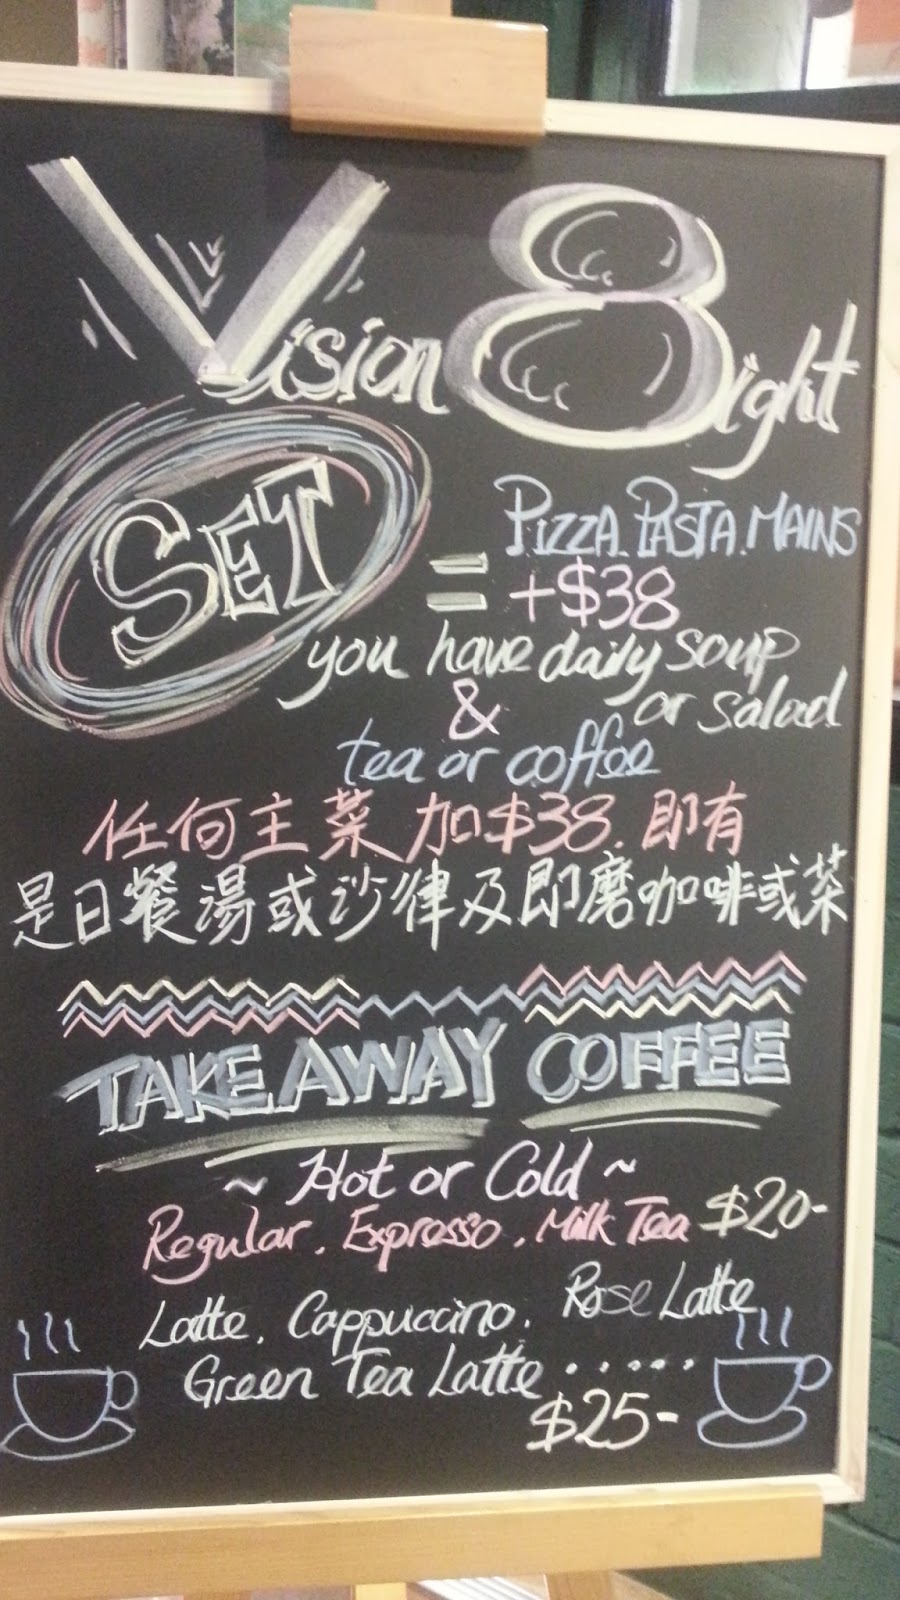 Vision 8ight
SET = PIZZA. PASTA. MAINS
+$38
you have daily soup
or salad
&
tea or coffee
任何主菜加$38.即有
是日餐湯或沙律及即磨咖啡或茶
TAKE AWAY COFFEE
~ Hot or Cold ~
Regular. Expresso. Milk Tea $20-
Latte. Cappuccino. Rose Latte
Green Tea Latte ......
$25-